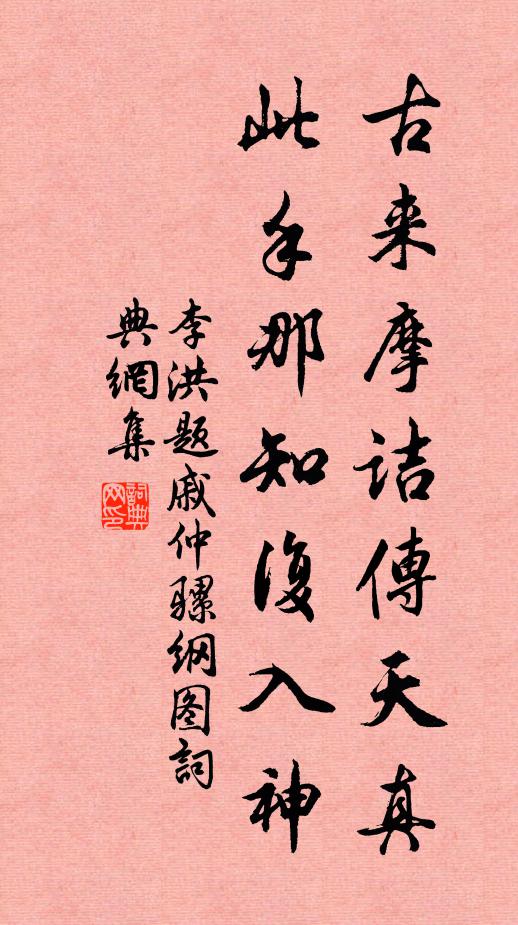 古来摩诘傳天真
此手那知復入神
李洪题戚仲骡纲图詞
典網集
詞典
网印